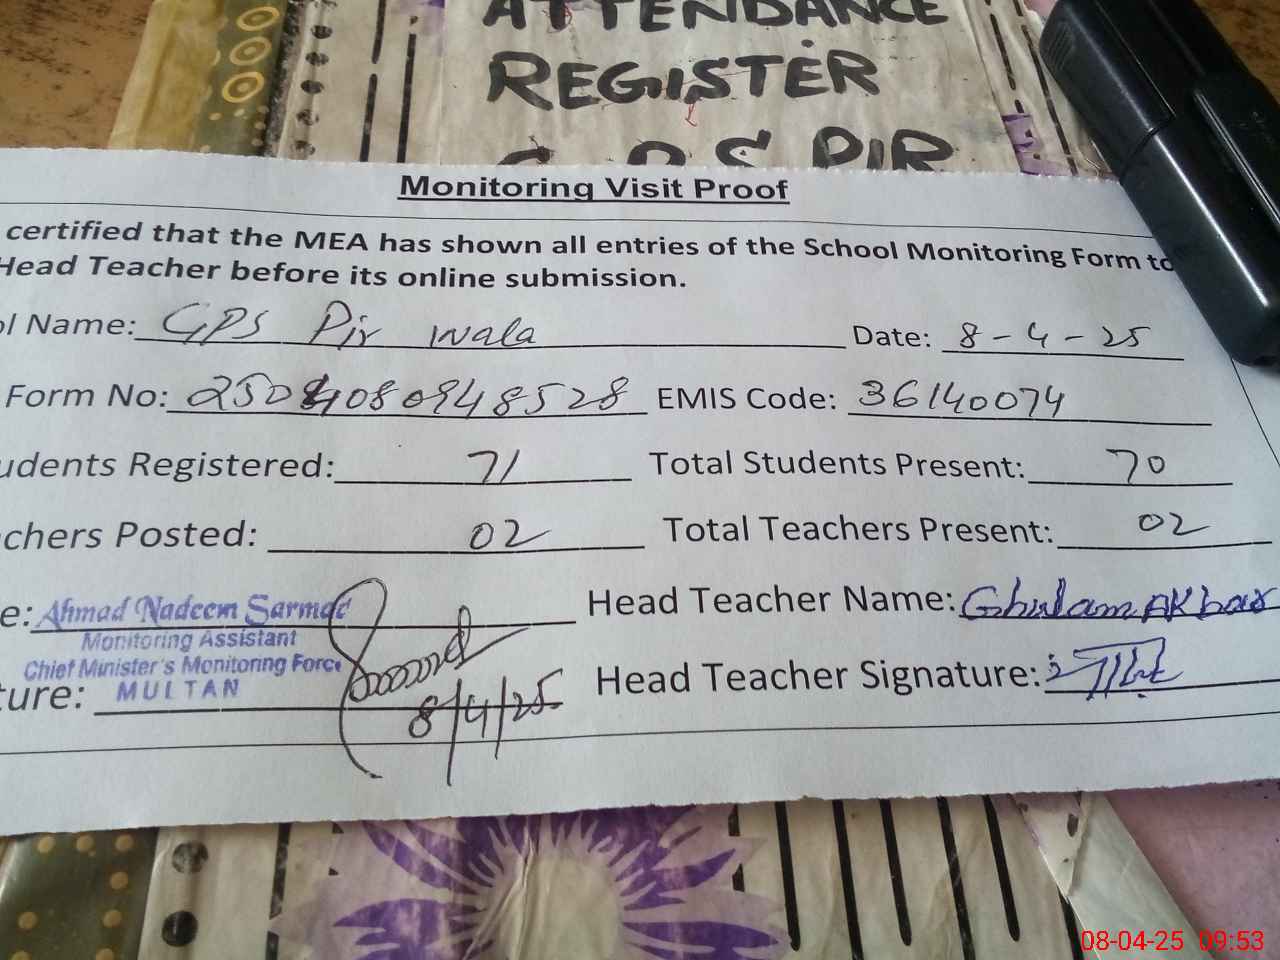 ATTENDANCE
REGISTER
G.P.S PIR
Monitoring Visit Proof
certified that the MEA has shown all entries of the School Monitoring Form to
Head Teacher before its online submission.
ol Name: GPS Pir wala Date: 8-4-25
Form No: 2504080948528 EMIS Code: 36140074
udents Registered: 71 Total Students Present: 70
chers Posted: 02 Total Teachers Present: 02
e: Ahmad Nadeem Sarmad Head Teacher Name: Ghulam Akbar
Monitoring Assistant
Chief Minister's Monitoring Force
ture: MULTAN 8/4/25 Head Teacher Signature:
08-04-25 09:53